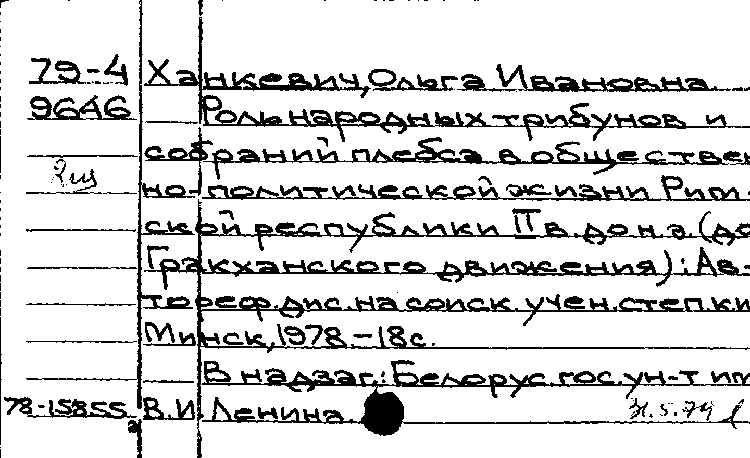 79-4 Ханкевич, Ольга Ивановна
9646 Роль народных трибунов и
собраний плебса в обществен
но-политической жизни Рим-
ской республики II в. до н.э. (до
Гракханского движения): Ав-
тореф. дис. на соиск. учен. степ. ки
Минск, 1978.-18с.
В надзаг.: Белорус. гос. ун-т им
78-15855 В.И. Ленина 31.5.79
а